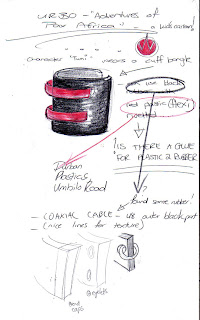 URJBO - "Adventures of
Four Africa" - a kid's cartoon
character "Tumi" wears a cuff bangle
use black
red plastic (flexi
riveted
!
IS THERE A GLUE
FOR PLASTIC 2 RUBBER
?
Durban
Plastics,
Umbilo Road
found some rubber!
- COAXIAL CABLE - use outer black part
- (nice lines for texture)